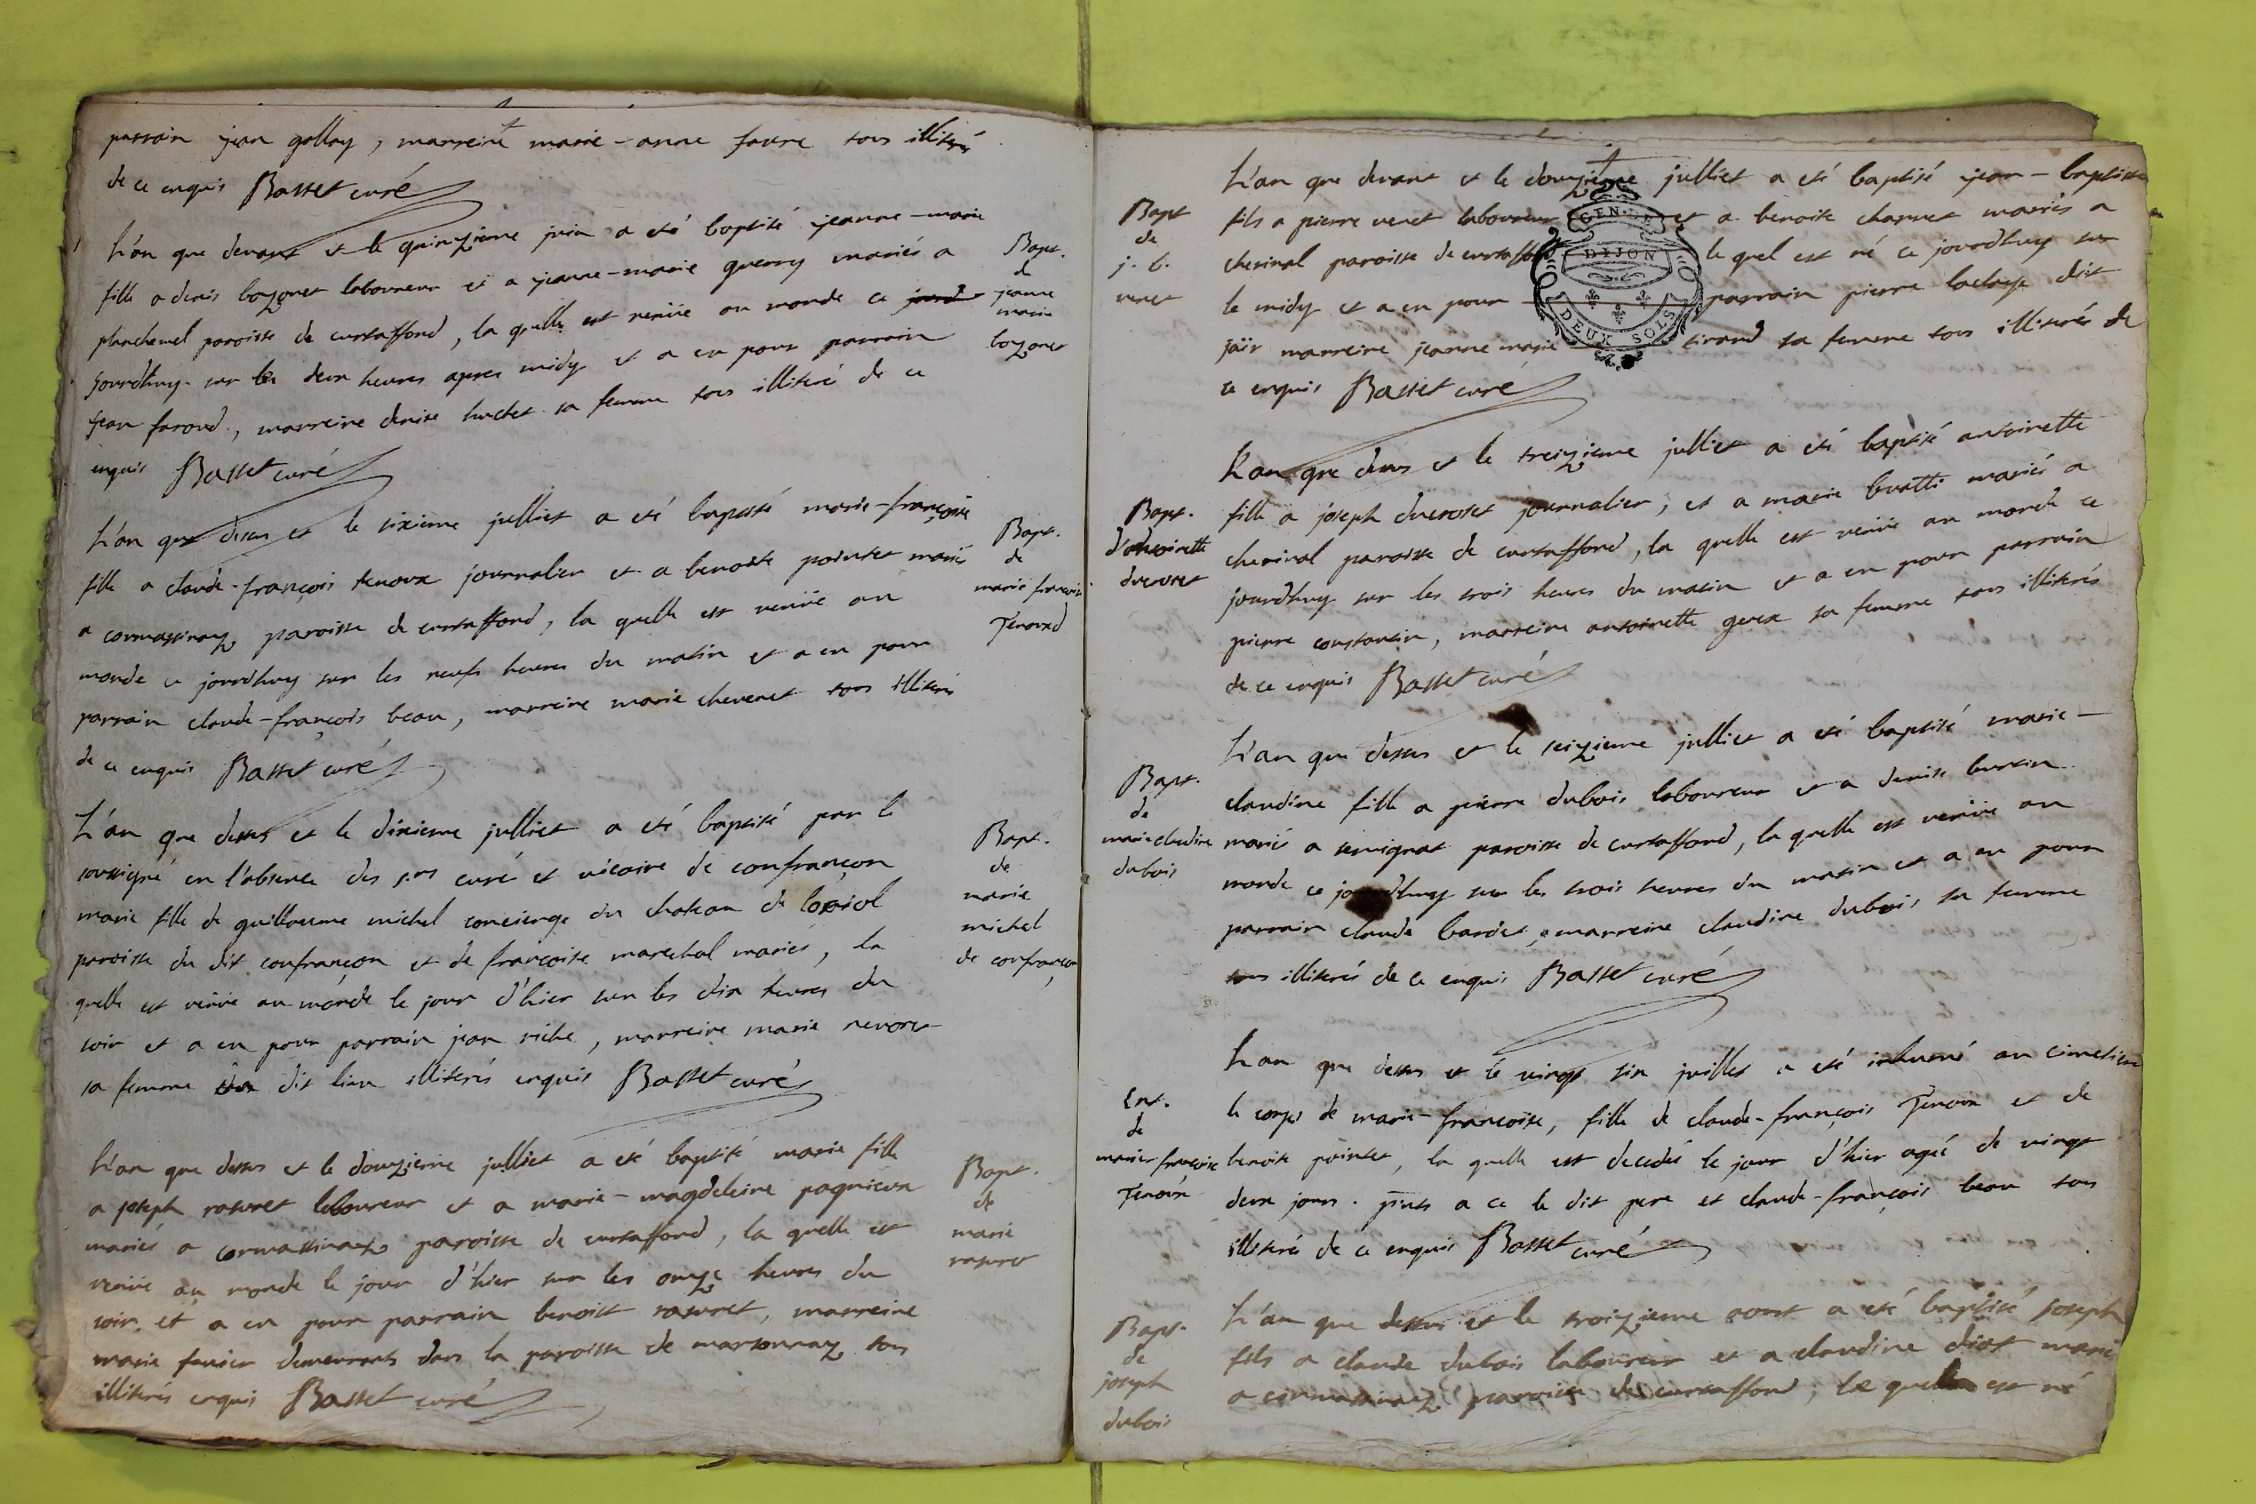 parrain jean gollay, marreine marie-anne favre tous illiterés
de ce enquis Basset curé
L'an que devant et le quinzieme juin a eté baptisé jeanne-marie
fille a denis bozonet laboureur et a jeanne-marie guerry mariés a
planchemel paroisse de curtaffond, la quelle est venüe au monde ce jourd
jourdhuy sur les deux heures apres midy et a eu pour parrain
jean farond, marreine denise huchet sa femme tous illiteré de ce
enquis Basset curé
Bapt.
de
jeanne
marie
bozonet
L'an que dessus et le sixieme julliet a eté baptisé marie-françoise
fille a claude-françois tenoux journalier et a benoite pointet mariés
a cormassinaz paroisse de curtaffond, la quelle est venüe au
monde ce jourdhuy sur les neufs heures du matin et a eu pour
parrain claude-françois beau, marreine marie chevenet tous illiterés
de ce enquis Basset curé
Bapt.
de
marie françoise
Tenoux
L'an que dessus et le dixieme julliet a eté baptisé par le
soussigné en l'absence des srs curé et vicaire de confrançon
marie fille de guillaume michel concierge du chateau de loriol
paroisse du dit confrançon et de françoise marechal mariés, la
quelle est venüe au monde le jour d'hier sur les dix heures du
soir et a eu pour parrain jean riche, marreine marie nevoret
sa femme du dit lieu illiterés enquis Basset curé
Bapt.
de
marie
michel
de confrançon
L'an que dessus et le douzieme julliet a eté baptisé marie fille
a joseph ravret laboureur et a marie-magdeleine pagnieux
mariés a cormassinaz paroisse de curtaffond, la quelle est
venüe au monde le jour d'hier sur les onze heures du
soir et a eu pour parrain benoist ravret, marreine
marie favier demeurants dans la paroisse de marsonnaz tous
illiterés enquis Basset curé
Bapt.
de
marie
ravret
L'an que devant et le douzieme julliet a eté baptisé jean-baptiste
fils a pierre venet laboureur et a benoite charnet mariés a
cherinal paroisse de curtaffond le quel est né ce jourdhuy sur
le midy et a eu pour parrain pierre laclaye dit
jaïr marreine jeanne marie tirand sa femme tous illiterés de
ce enquis Basset curé
Bapt
de
j. b.
venet
GEN. DE
DIJON
DEUX SOLS
L'an que dessus et le treizieme julliet a eté baptisé antoinette
fille a joseph ducroset journalier, et a marie buatti mariés a
cherinal paroisse de curtaffond, la quelle est venüe au monde ce
jourdhuy sur les trois heures du matin et a eu pour parrain
pierre constantin, marreine antoinette geux sa femme tous illiterés
de ce enquis Basset curé
Bapt.
d'antoinette
ducroset
L'an que dessus et le seizieme julliet a eté baptisé marie-
claudine fille a pierre dubois laboureur et a denise burtin
mariés a servignat paroisse de curtaffond, la quelle est venüe au
monde ce jourdhuy sur les trois heures du matin et a eu pour
parrain claude bardet, marreine claudine dubois sa femme
tous illiterés de ce enquis Basset curé
Bapt.
de
marie claudine
dubois
L'an que dessus et le vingt six juillet a eté inhumé au cimetiere
le corps de marie-françoise, fille de claude-françois Tenoux et de
benoite pointet, la quelle est decedée le jour d'hier agée de vingt
deux jours. pnts a ce le dit pere et claude-françois beau tous
illiterés de ce enquis Basset curé
Ent.
de
marie françoise
Tenoux
L'an que dessus et le troizieme aout a eté baptisé joseph
fils a claude dubois laboureur et a claudine diot mariés
a cormassinaz paroisse de curtaffond, le quel est né
Bapt.
de
joseph
dubois